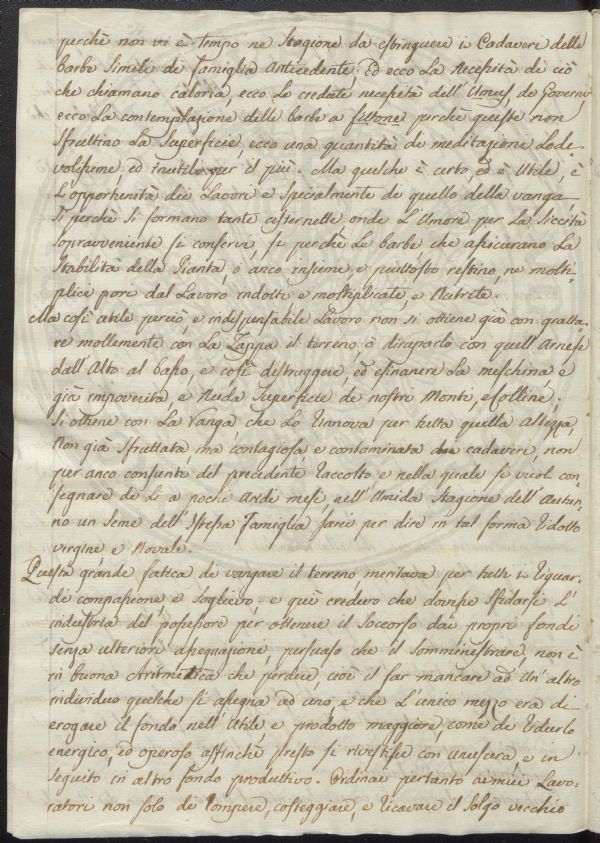 perchè non vi è tempo ne Stagione da estinguere i Cadaveri delle
barbe simili di famiglia Antecedente: ed ecco La Necessità di ciò
che chiamano caloria, ecco Le credute necessità dell'Umus de Governi
ecco La contemplazione delle barbe a fittone perchè queste non
sfruttino La Superficie, ecco una quantità di meditazione Lode-
volissime, ed inutile per il più. Ma quelche è certo, ed è Utile, è
L'opportunità dei Lavori e specialmente di quello della vanga
Si perchè si formano tante cisternette onde L'Umore per La Siccità
sopravveniente si conservi, si perchè Le barbe che assicurano La
stabilità della Pianta, o anco insieme, e piuttosto restino, ne molti-
plici pori dal Lavoro indotti e moltiplicate, e Nutrite.
Ma così utile perciò, e indispensabile Lavoro non si ottiene già con gratta-
re mollemente con La Zappa il terreno, o diraparlo con quell'Arnese
dall'Alto al basso, e così distruggere, ed esinanire La meschina, e
già impoverita, e Nuda Superficie de nostri Monti, e Colline;
Si ottiene con La Vanga, che Lo Rinnova per tutta quella Altezza,
Non già sfruttata, ma contagiosa, e contaminata da cadaveri, non
per anco consunti del precedente Raccolto e nella quale si vuol con-
segnare di Lì a poche Aride mesi, nell'Umida Stagione dell'Autun-
no un Seme dell'Istessa Famiglia, sarei per dire in tal forma Ridotto
vergine e Novale.
Questa grande fatica di vangare il terreno meritava per tutti i Riguar-
di compassione e Soglievo: e quì credevo che dovesse sfidarsi L'
industria del possessore per ottenere il Soccorso dai propri fondi
senza ulteriore assegnazione, persuaso che il somministrare, non è
in buona Aritmetica che perdere, cioè il far mancare ad Un'altro
individuo quelche si assegna ad uno, e che L'unico mezzo era di
erogare il fondo nell'Utile, e prodotto maggiore, come di Riderlo
energico, ed operoso affinchè presto si rivestisse con usura e in
seguito in altro fondo produttivo. Ordinai pertanto ai miei Lavo-
ratori non solo di Rompere, costeggiare, e Ricavare il Solgo vecchio